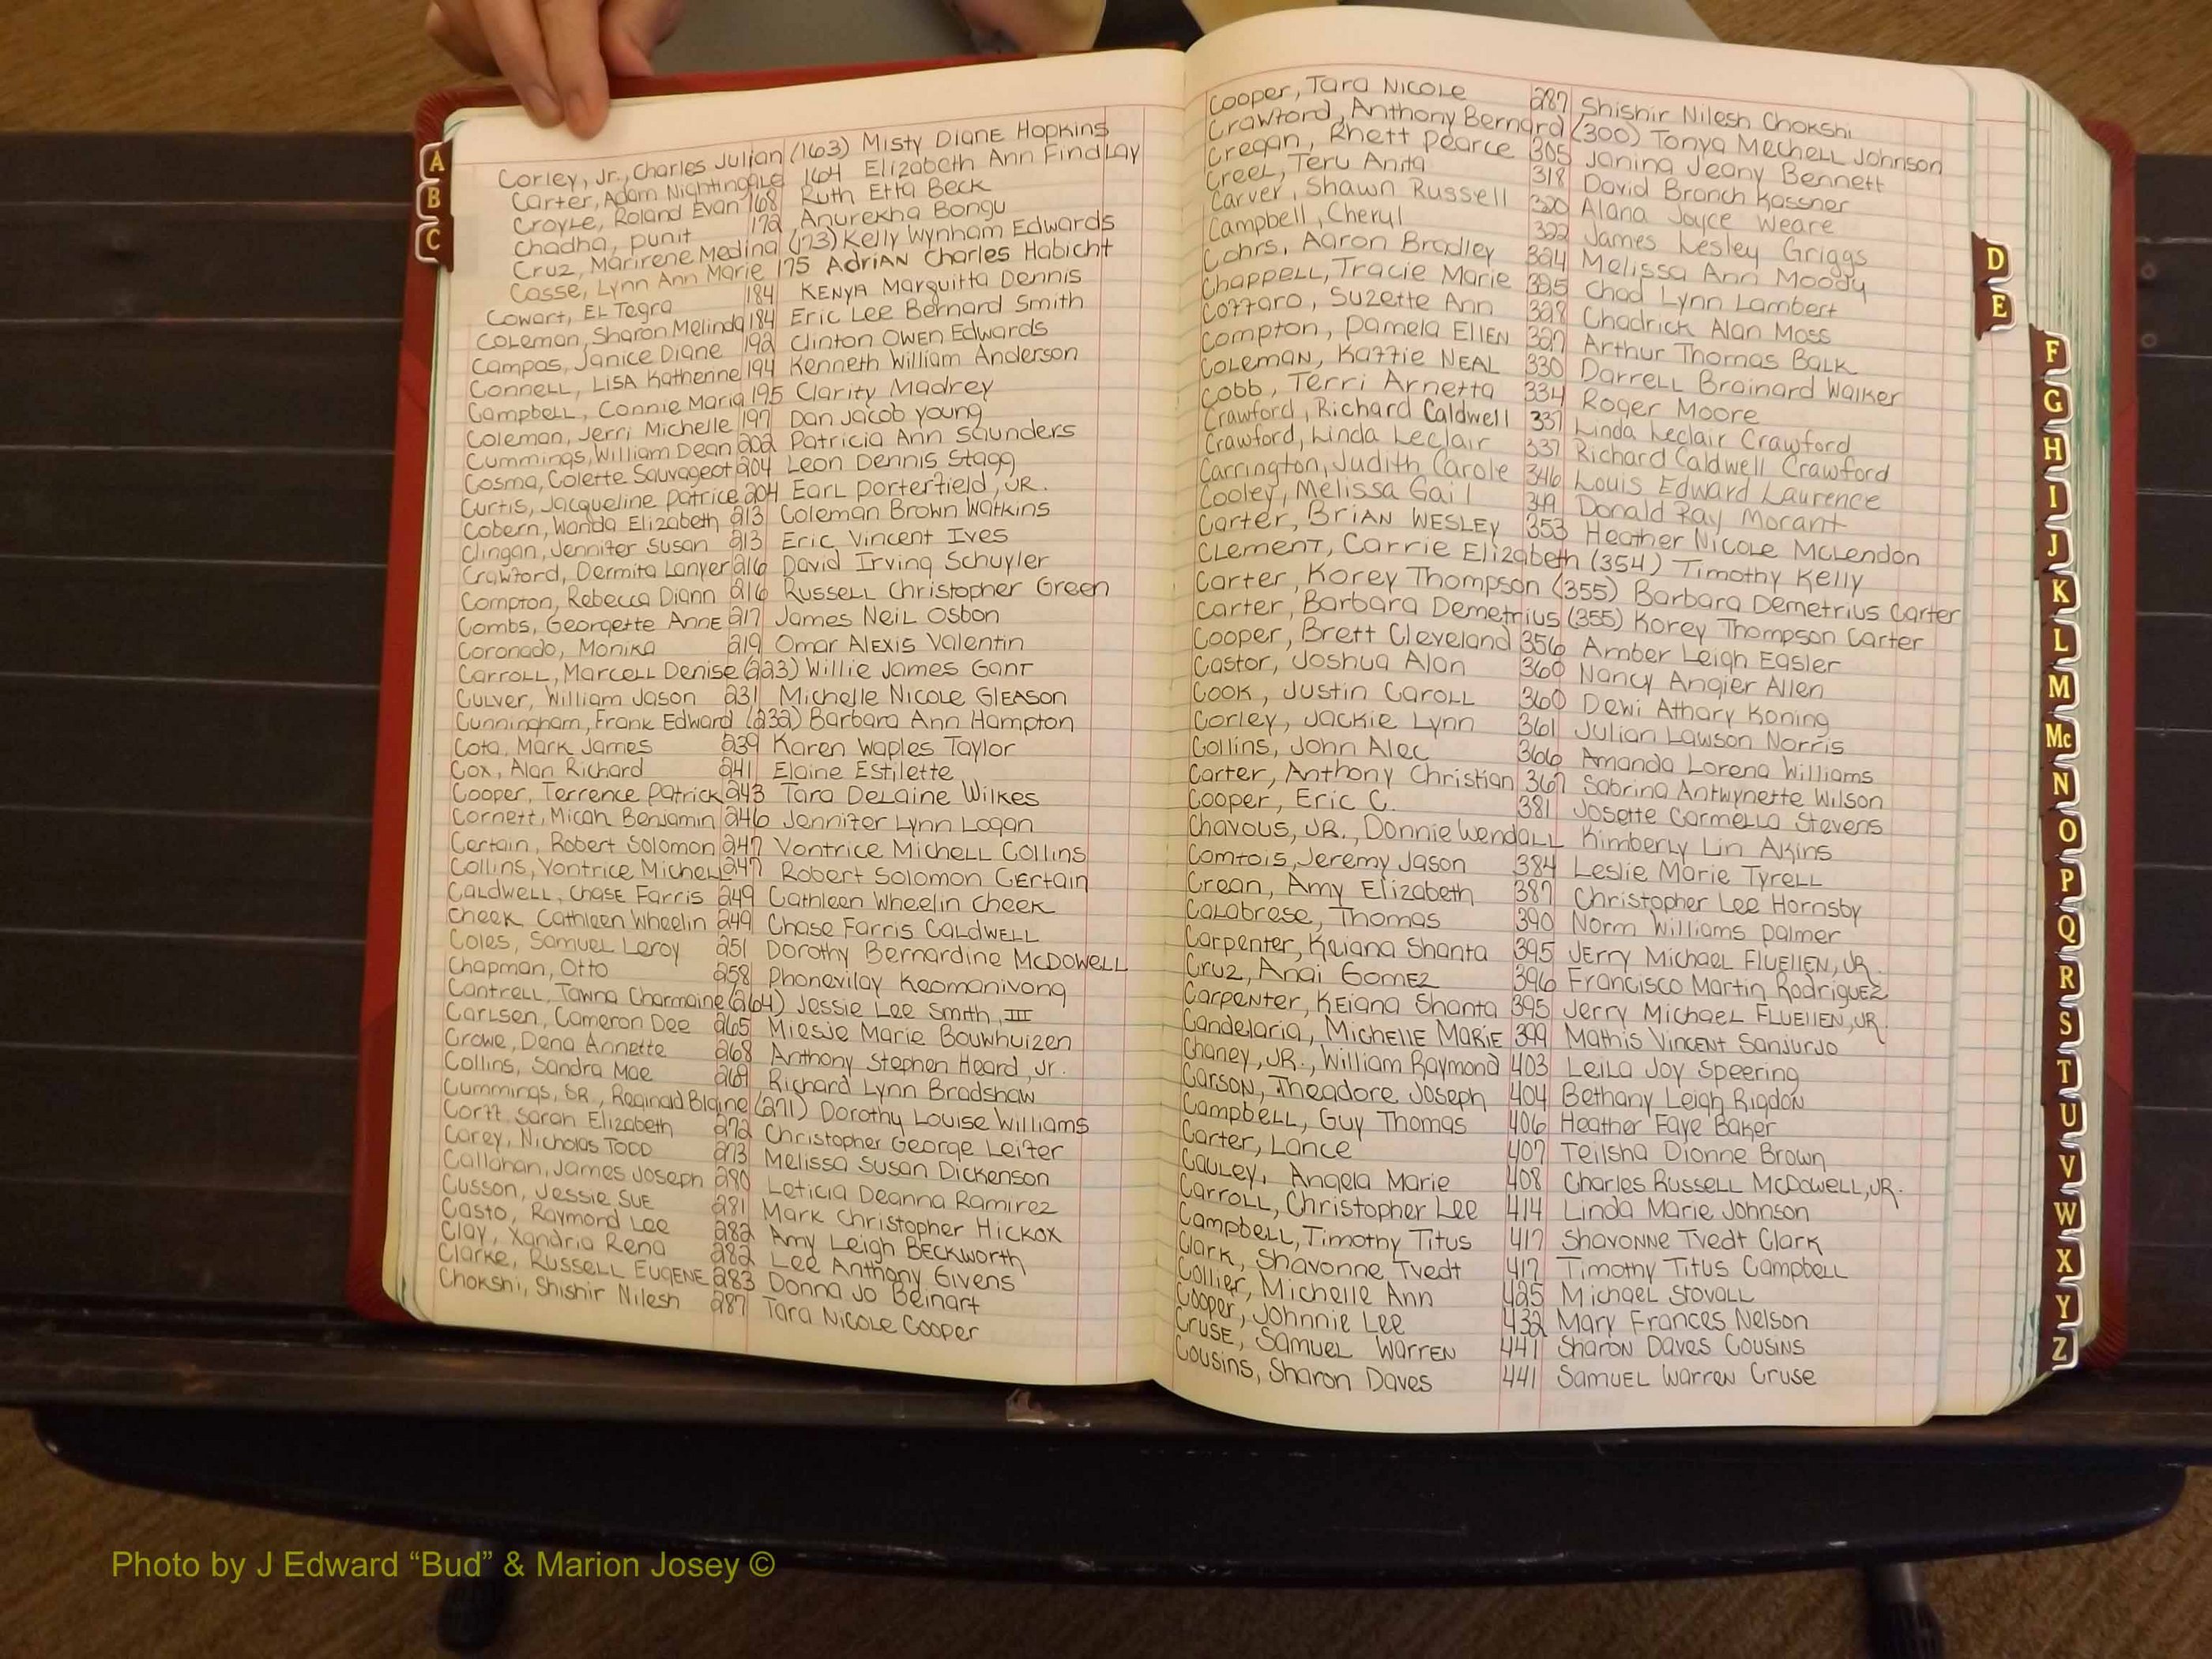 A
B
C
Corley, Jr., Charles Julian (163) Misty Diane Hopkins
Carter, Adam Nightingale 164 Elizabeth Ann Findlay
Croyle, Roland Evan 168 Ruth Etta Beck
Chadha, Punit 172 Anurekha Bongu
Cruz, Marirene Medina (173) Kelly Wynham Edwards
Casse, Lynn Ann Marie 175 Adrian Charles Habicht
Cowart, El Tegra 184 Kenya Marquitta Dennis
Coleman, Sharon Melinda 184 Eric Lee Bernard Smith
Campos, Janice Diane 192 Clinton Owen Edwards
Connell, Lisa Katherine 194 Kenneth William Anderson
Campbell, Connie Maria 195 Clarity Madrey
Coleman, Jerri Michelle 197 Dan Jacob Young
Cummings, William Dean 202 Patricia Ann Saunders
Cosma, Colette Sauvageot 204 Leon Dennis Stagg
Curtis, Jacqueline Patrice 204 Earl Porterfield, Jr.
Cobern, Wanda Elizabeth 213 Coleman Brown Watkins
Clingan, Jennifer Susan 213 Eric Vincent Ives
Crawford, Dermita Lanyer 216 David Irving Schuyler
Compton, Rebecca Diann 216 Russell Christopher Green
Combs, Georgette Anne 217 James Neil Osbon
Coronado, Monika 219 Omar Alexis Valentin
Carroll, Marcell Denise (223) Willie James Gant
Culver, William Jason 231 Michelle Nicole Gleason
Cunningham, Frank Edward (232) Barbara Ann Hampton
Cota, Mark James 239 Karen Waples Taylor
Cox, Alan Richard 241 Elaine Estilette
Cooper, Terrence Patrick 243 Tara DeLaine Wilkes
Cornett, Micah Benjamin 246 Jennifer Lynn Logan
Certain, Robert Solomon 247 Vontrice Michell Collins
Collins, Vontrice Michell 247 Robert Solomon Certain
Caldwell, Chase Farris 249 Cathleen Wheelin Cheek
Cheek Cathleen Wheelin 249 Chase Farris Caldwell
Coles, Samuel Leroy 251 Dorothy Bernardine McDowell
Chapman, Otto 258 Phonevilay Keomanivong
Cantrell, Tawna Charmaine (264) Jessie Lee Smith, III
Carlsen, Cameron Dee 265 Miesje Marie Bouwhuizen
Crowe, Dena Annette 268 Anthony Stephen Heard, Jr.
Collins, Sandra Mae 269 Richard Lynn Bradshaw
Cummings, Sr., Reginald Blaine (271) Dorothy Louise Williams
Cortt, Sarah Elizabeth 272 Christopher George Leiter
Carey, Nicholas Todd 273 Melissa Susan Dickenson
Callahan, James Joseph 280 Leticia Deanna Ramirez
Cusson, Jessie Sue 281 Mark Christopher Hickox
Casto, Raymond Lee 282 Amy Leigh Beckworth
Clay, Xandria Rena 282 Lee Anthony Givens
Clarke, Russell Eugene 283 Donna Jo Beinart
Chokshi, Shishir Nilesh 287 Tara Nicole Cooper
Cooper, Tara Nicole 287 Shishir Nilesh Chokshi
Crawford, Anthony Bernard (300) Tonya Mechell Johnson
Cregan, Rhett Pearce 305 Janina Jeany Bennett
Creel, Teru Anita 318 David Branch Kassner
Carver, Shawn Russell 320 Alana Joyce Weare
Campbell, Cheryl 322 James Lesley Griggs
Cohrs, Aaron Bradley 324 Melissa Ann Moody
Chappell, Tracie Marie 325 Chad Lynn Lambert
Coffaro, Suzette Ann 328 Chadrick Alan Moss
Compton, Pamela Ellen 327 Arthur Thomas Balk
Coleman, Kattie Neal 330 Darrell Brainard Walker
Cobb, Terri Arnetta 334 Roger Moore
Crawford, Richard Caldwell 337 Linda Leclair Crawford
Crawford, Linda Leclair 337 Richard Caldwell Crawford
Carrington, Judith Carole 346 Louis Edward Laurence
Cooley, Melissa Gail 349 Donald Ray Morant
Carter, Brian Wesley 353 Heather Nicole McLendon
Clement, Carrie Elizabeth (354) Timothy Kelly
Carter, Korey Thompson (355) Barbara Demetrius Carter
Carter, Barbara Demetrius (355) Korey Thompson Carter
Cooper, Brett Cleveland 356 Amber Leigh Easler
Castor, Joshua Alan 360 Nancy Angier Allen
Cook, Justin Caroll 360 Dewi Athary Koning
Corley, Jackie Lynn 361 Julian Lawson Norris
Collins, John Alec 366 Amanda Lorena Williams
Carter, Anthony Christian 367 Sabrina Antwynette Wilson
Cooper, Eric C. 381 Josette Carmella Stevens
Chavous, Jr., Donnie Wendall Kimberly Lin Akins
Comtois, Jeremy Jason 384 Leslie Marie Tyrell
Crean, Amy Elizabeth 387 Christopher Lee Hornsby
Calabrese, Thomas 390 Norm Williams Palmer
Carpenter, Keiana Shanta 395 Jerry Michael Fluellen, Jr.
Cruz, Anai Gomez 396 Francisco Martin Rodriguez
Carpenter, Keiana Shanta 395 Jerry Michael Fluellen, Jr.
Candelaria, Michelle Marie 399 Mathis Vincent Sanjurjo
Chaney, Jr., William Raymond 403 Leila Joy Speering
Carson, Theadore Joseph 404 Bethany Leigh Rigdon
Campbell, Guy Thomas 406 Heather Faye Baker
Carter, Lance 407 Teilsha Dionne Brown
Cauley, Angela Marie 408 Charles Russell McDowell, Jr.
Carroll, Christopher Lee 414 Linda Marie Johnson
Campbell, Timothy Titus 417 Shavonne Tvedt Clark
Clark, Shavonne Tvedt 417 Timothy Titus Campbell
Collier, Michelle Ann 425 Michael Stovall
Cooper, Johnnie Lee 432 Mary Frances Nelson
Cruse, Samuel Warren 441 Sharon Daves Cousins
Cousins, Sharon Daves 441 Samuel Warren Cruse
D
E
F
G
H
I
J
K
L
M
Mc
N
O
P
Q
R
S
T
U
V
W
X
Y
Z
Photo by J Edward “Bud” & Marion Josey ©